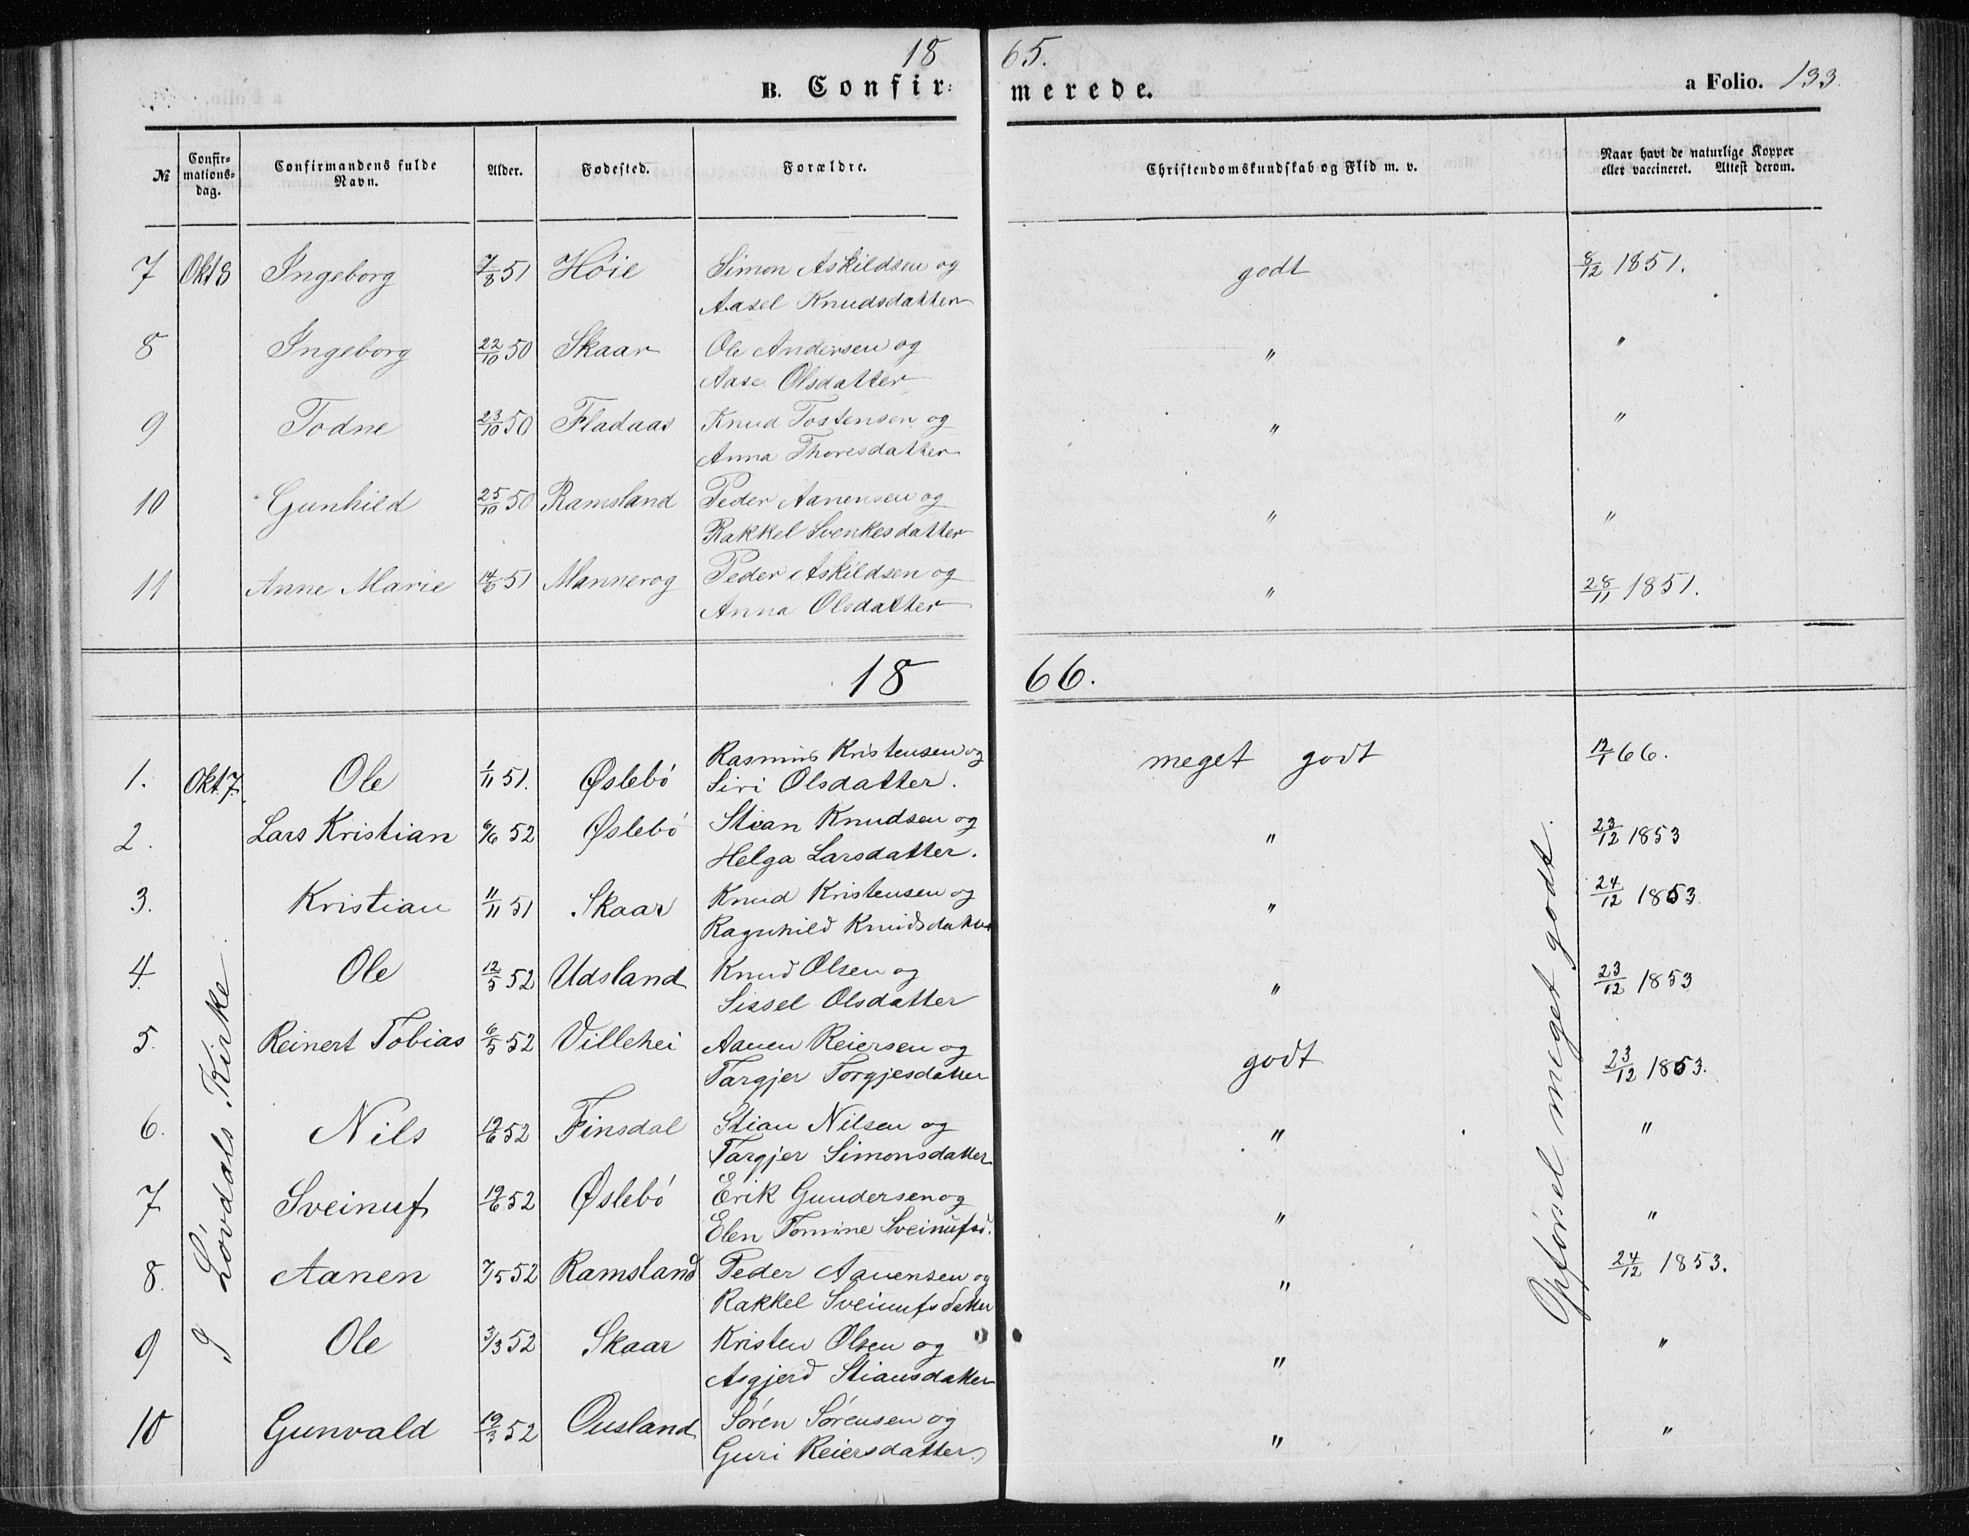 18 65.
B. Confirmerede. a Folio. 133.
№ Confirmationsdag. Confirmandens fulde Navn. Alder. Fødested. Forældre. Christendomskundskab og Flid m. v. Naar havt de naturlige Kopper eller vaccineret. Attest derom.
7 Okt 8 Ingeborg 7/8 51 Höie Simon Askildsen og godt 8/12 1851.
Aasel Knudsdatter
8 Ingeborg 22/10 50 Skaar Ole Andersen og " "
Aase Olsdatter
9 Todne 23/10 50 Fladaas Knud Tostensen og " "
Anna Thoresdatter
10 Gunhild 25/10 50 Ramsland Peder Aanensen og " "
Rakkel Svenkesdatter
11 Anne Marie 14/6 51 Mannerog Peder Askildsen og " 28/11 1851.
Anna Olsdatter
18 66.
Rasmus Kristensen og
1. Okt 7. Ole 1/11 51. Øslebö Siri Olsdatter. meget godt 12/1 66.
2. Lars Kristian 6/6 52 Øslebö Stian Knudsen og " 23/12 1853
Helga Larsdatter.
3. Kristian 11/11 51 Skaar Knud Kristensen og " 24/12 1853
Ragnhild Knudsdatter
4. Ole 12/5 52 Udsland Knud Olsen og " 23/12 1853
Sissel Olsdatter
5. Reinert Tobias 6/5 52 Villehei Aanen Reiersen og godt 23/12 1853.
Targjer Torgjesdatter
6. Nils 19/6 52 Finsdal Stian Nilsen og " "
Targjer Simonsdatter
7 Sveinuf 19/6 52 Øslebö Erik Gundersen og " "
Elen Tomine Sveinufsd.
8. Aanen 7/5 52 Ramsland Peder Aanensen og " 24/12 1853.
Rakkel Sveinufsdatter
9 Ole 3/3 52 Skaar Kristen Olsen og " "
Asgjerd Stiansdatter
10 Gunvald 19/3 52 Ousland Sören Sörensen og " "
Guri Reiersdatter.
I Lövdals Kirke.
Opförsel meget godt.